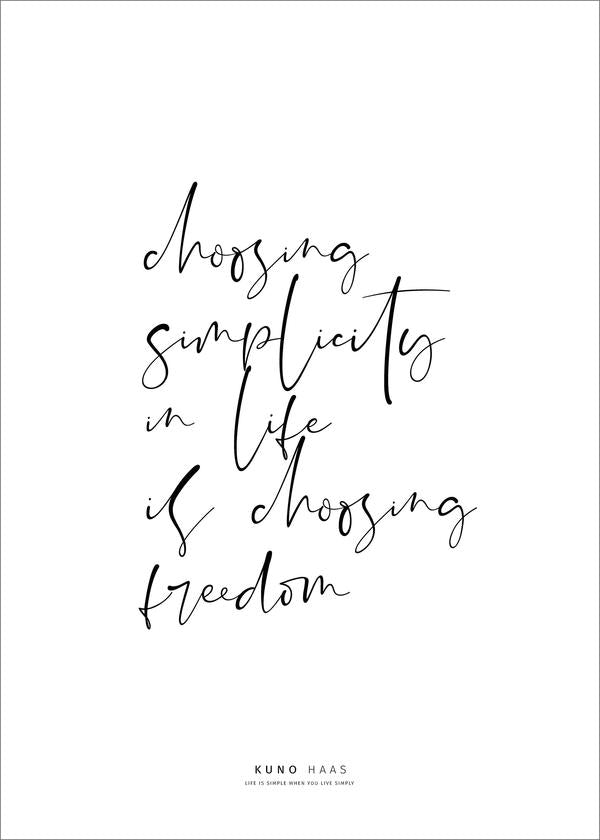 choosing
simplicity
in life
is choosing
freedom
KUNO HAAS
LIFE IS SIMPLE WHEN YOU LIVE SIMPLY